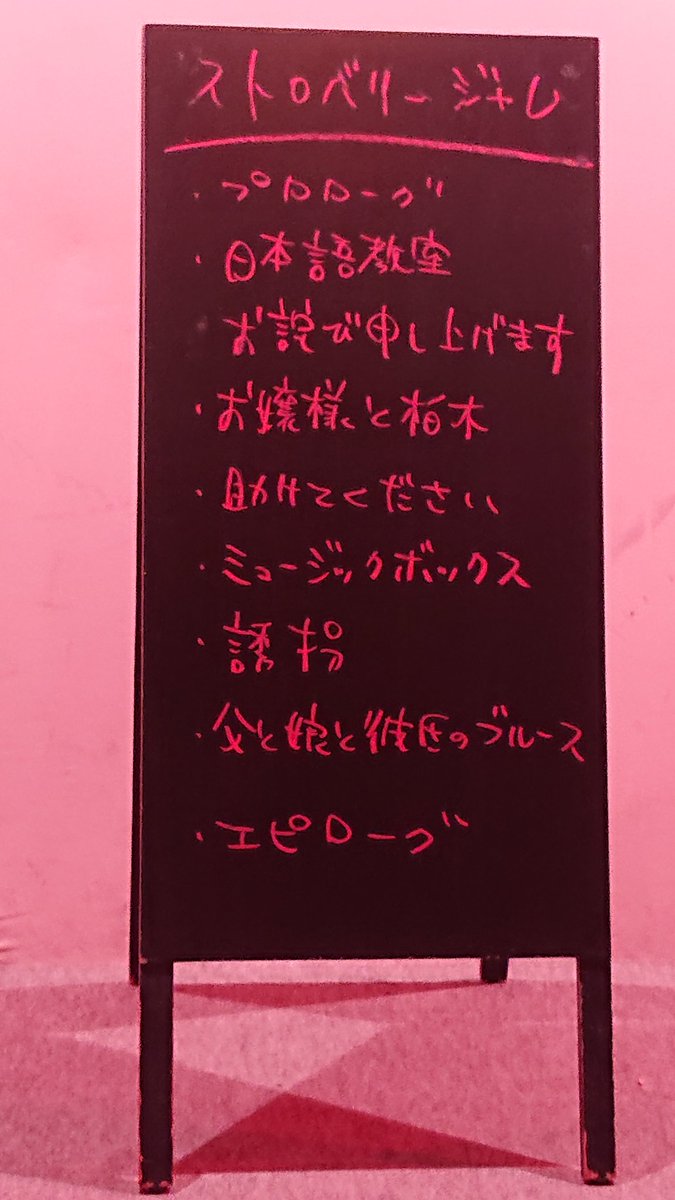 ストロベリージャム
・プロローグ
・日本語教室
お詫び申し上げます
・お嬢様と柏木
・助けてください
・ミュージックボックス
・誘拐
・父と娘と彼氏のブルース
・エピローグ